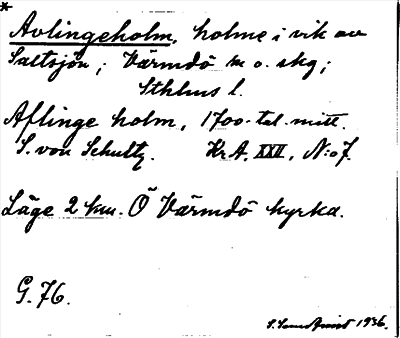 *
Avlingeholm, holme i vik av
Saltsjön; Värmdö sn o. skg;
Sthlms l.
Aflinge holm, 1700-tal. mitt.
S. von Schultz. Kr A. XXII, N:o 7.
Läge 2 km. Ö Värmdö kyrka.
G. 76.
1936.